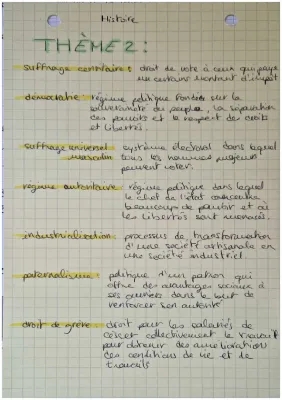 Histoire
THÈME 2 :
suffrage censitaire : droit de vote à ceux qui paye
un certains montant d'impôt
démocratie : régime politique fondée sur la
souveraineté du peuple, la séparation
des pouvoirs et le respect des droits
et libertés.
suffrage universel système électoral dans lequel
masculin tous les hommes majeurs
peuvent voter.
régime autoritaire régime politique dans lequel
le chef de l'état concentre
beaucoup de pouvoir et où
les libertés sont menacés.
industrialisation : processus de transformation
d'une société artisanale en
une société industriel.
paternalisme : politique d'un patron qui
offre des avantages sociaux à
ses ouvriers dans le but de
renforcer son autorité
droit de grève droit pour les salariés de
cesser collectivement le travail
pour obtenir des amélioration
des conditions de vie et de
travails